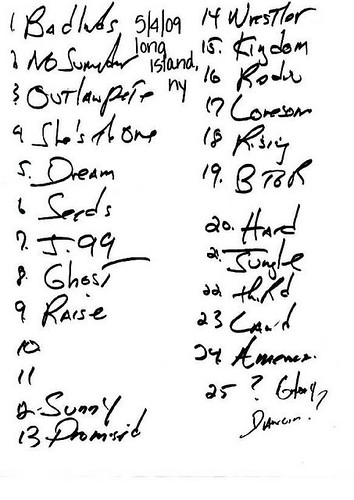 1 Badlnds
5/4/09
long
island,
ny
2 No Surrender
3 Outlaw Pete
4 She's th One
5. Dream
6 Seeds
7. J. 99
8. Ghost
9 Raise
10
11
12. Sunny
13. Promisid
14 Wrestler
15. Kigdom
16 Radio
17 Lonesom
18 Risig
19. BTOR
20. Hard
21. Jungle
22. thRd
23 Land
24. American.
25 ? Glory,
Dancin.